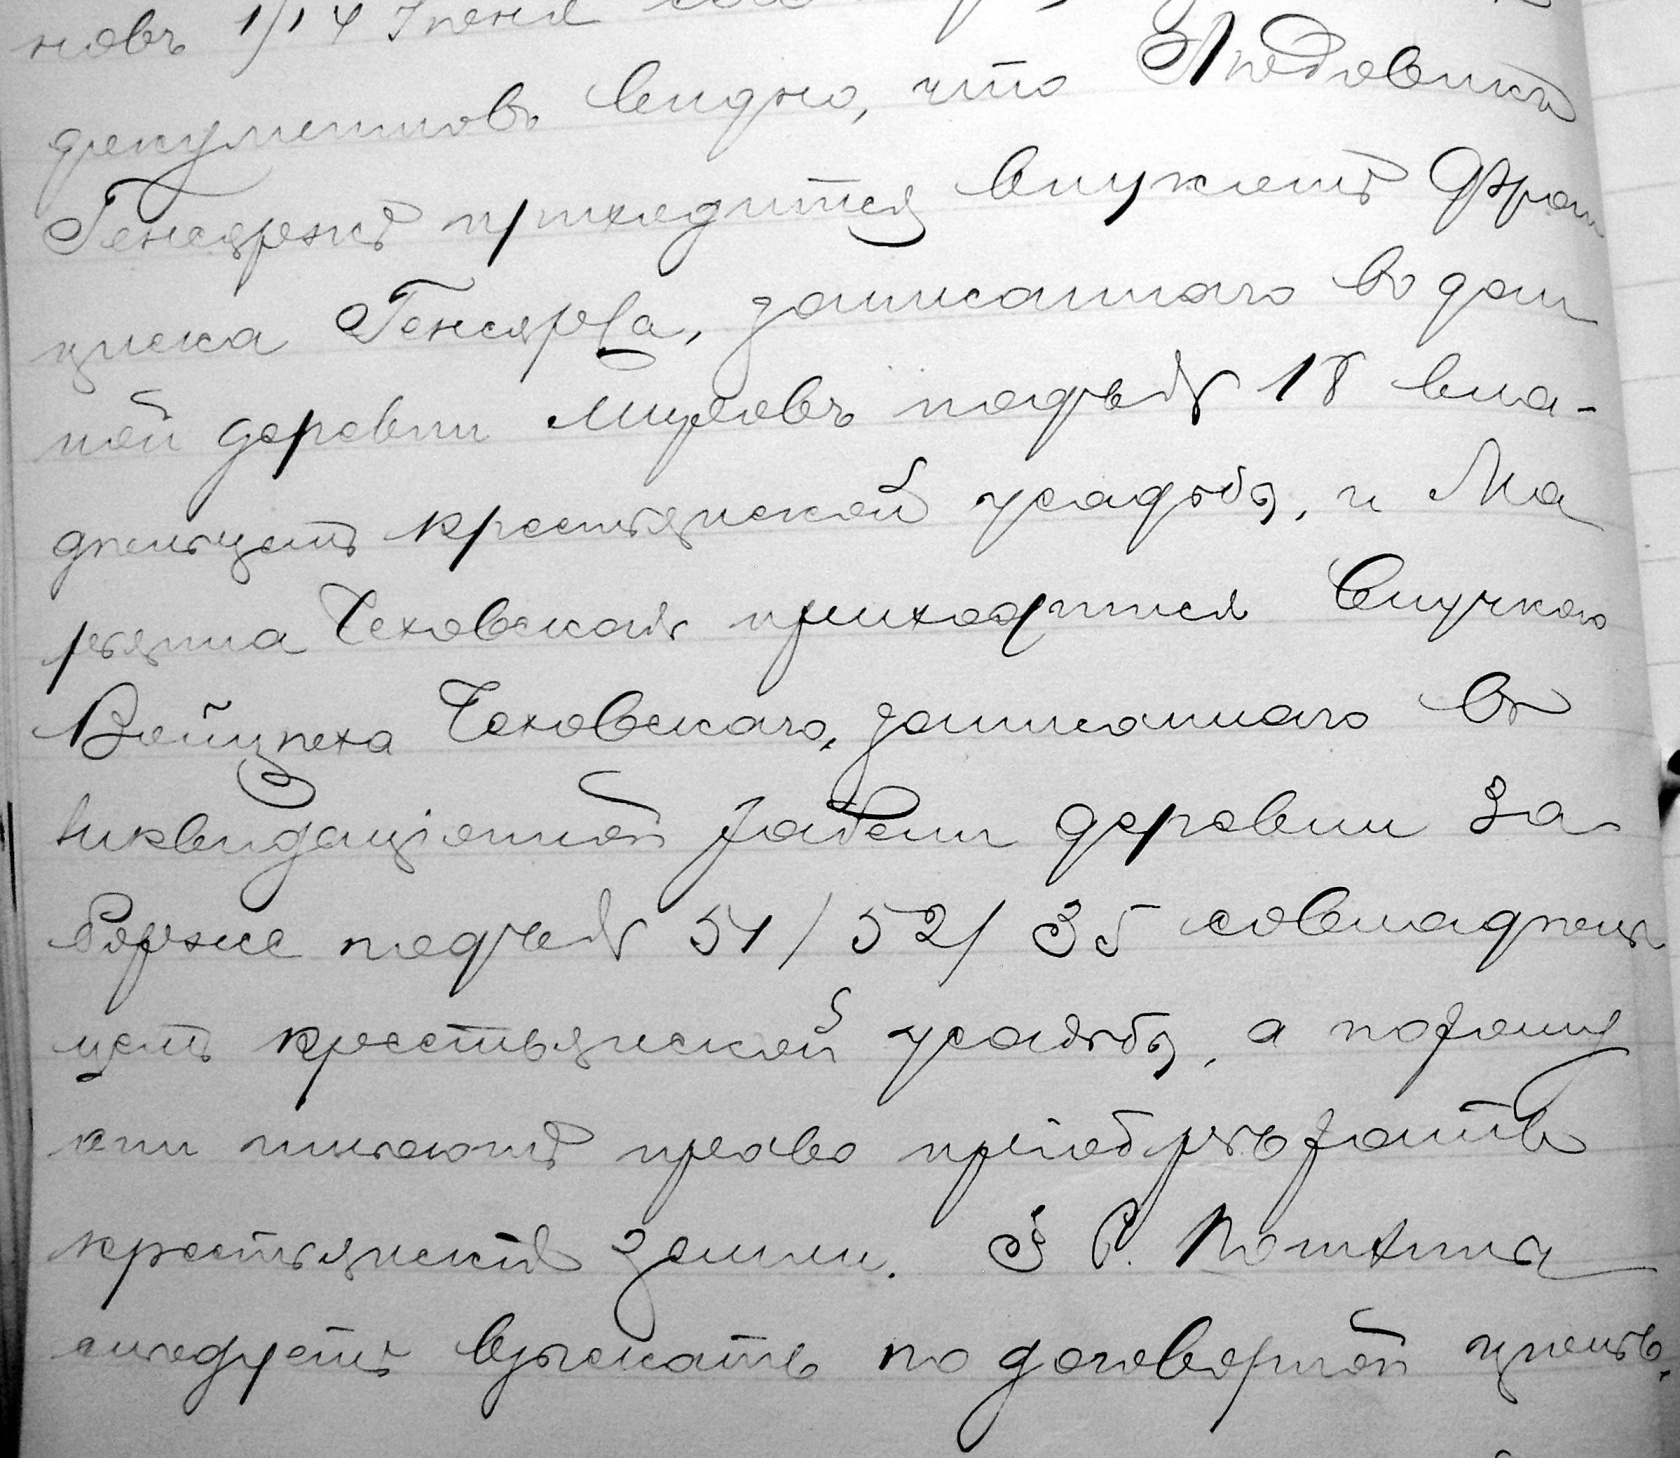 новъ 1/14 Iюня
документовъ видно, что Людовикъ
Генсяржъ приходится внукомъ Фран
циска Генсяржа, записаннаго во дан
ной деревни подъ № 18 вла-
дѣльцемъ крестьянской усадьбы, и Ма
рьянна Чеховская приходится внучкою
Войцѣха Чеховскаго, записаннаго въ
ликвидаціонной табели деревни За
боржее подъ № 51/52/35 совладѣль
цемъ крестьянской усадьбы, а потому
они имѣютъ право пріобрѣтать
крестьянскія земли. Г. Р. Пошлина
слѣдуетъ взыскать по договорной цѣнѣ.